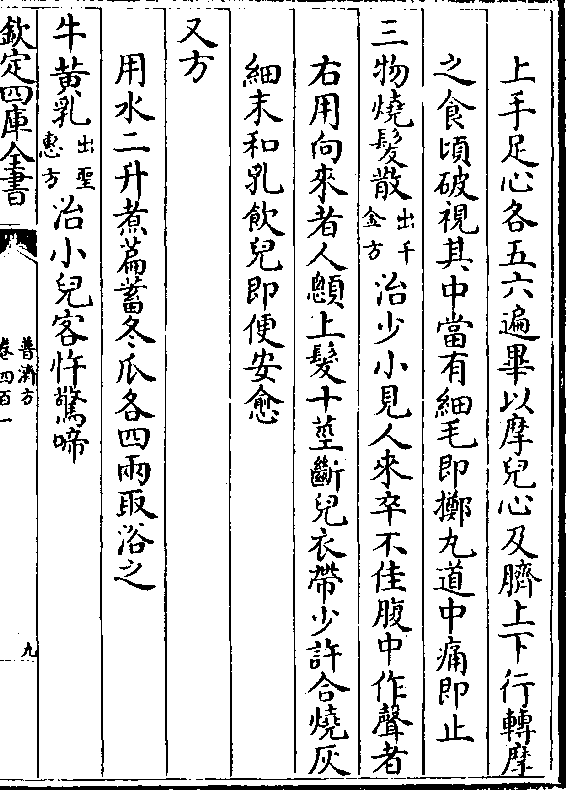 上手足心各五六遍畢以摩兒心及臍上下行轉摩
之食頃破視其中當有細毛即擲丸道中痛即止
三物燒髮散出千金方治少小見人來卒不佳腹中作聲者
右用向來者人顖上髮十莖斷兒衣帶少許合燒灰
細末和乳飲兒即便安愈
又方
用水二升煮萹蓄冬瓜各四兩取浴之
牛黃乳出聖惠方治小兒客忤驚啼
欽定四庫全書
普濟方
卷四百一
九